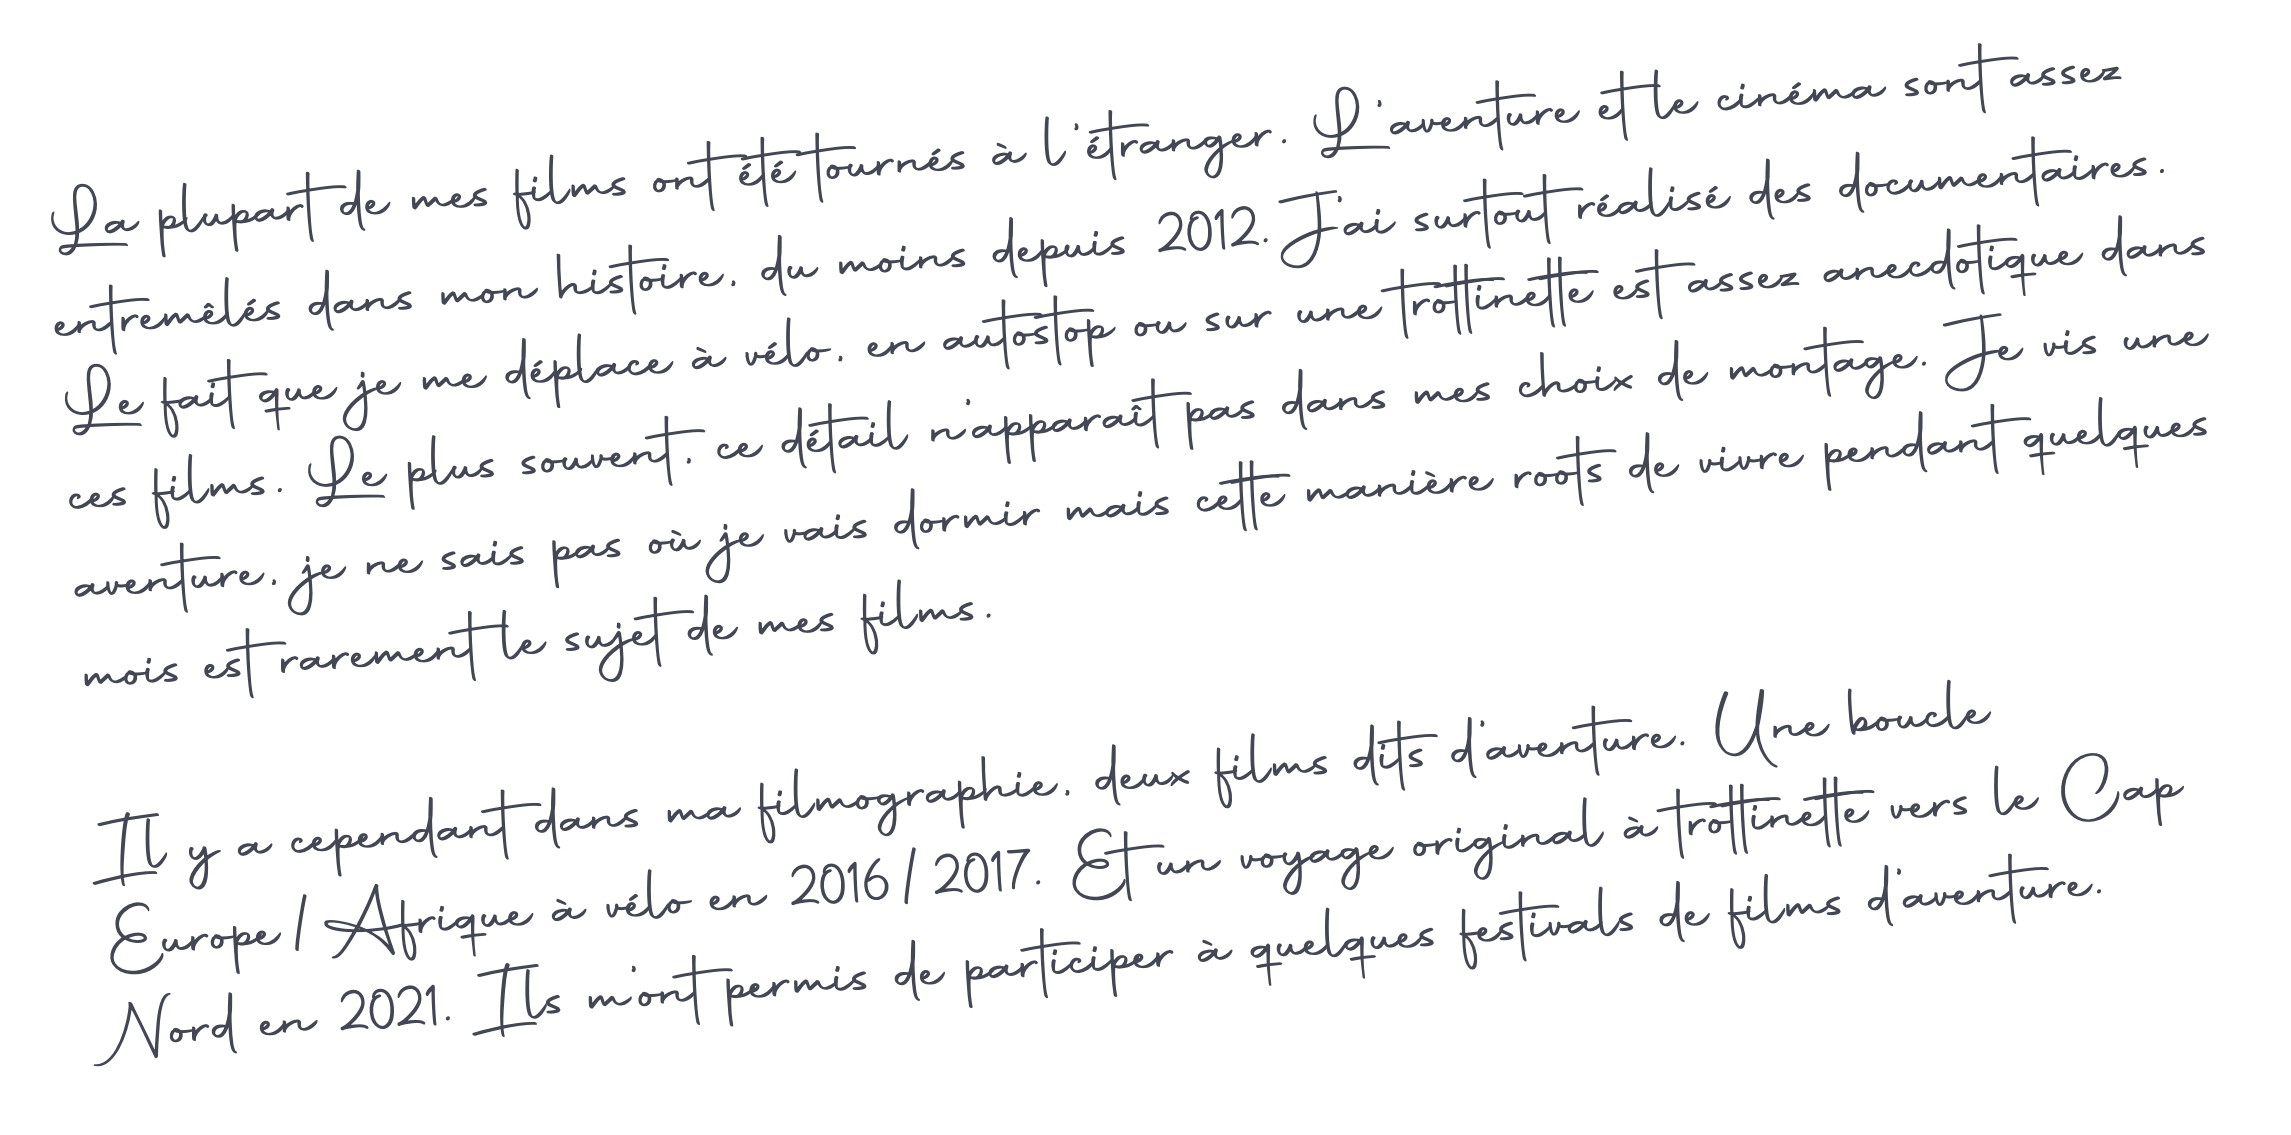 La plupart de mes films ont été tournés à l'étranger. L'aventure et le cinéma sont assez
entremêlés dans mon histoire, du moins depuis 2012. J'ai surtout réalisé des documentaires.
Le fait que je me déplace à vélo, en autostop ou sur une trottinette est assez anecdotique dans
ces films. Le plus souvent, ce détail n'apparaît pas dans mes choix de montage. Je vis une
aventure, je ne sais pas où je vais dormir mais cette manière roots de vivre pendant quelques
mois est rarement le sujet de mes films.
Il y a cependant dans ma filmographie, deux films dits d'aventure. Une boucle
Europe / Afrique à vélo en 2016 / 2017. Et un voyage original à trottinette vers le Cap
Nord en 2021. Ils m'ont permis de participer à quelques festivals de films d'aventure.